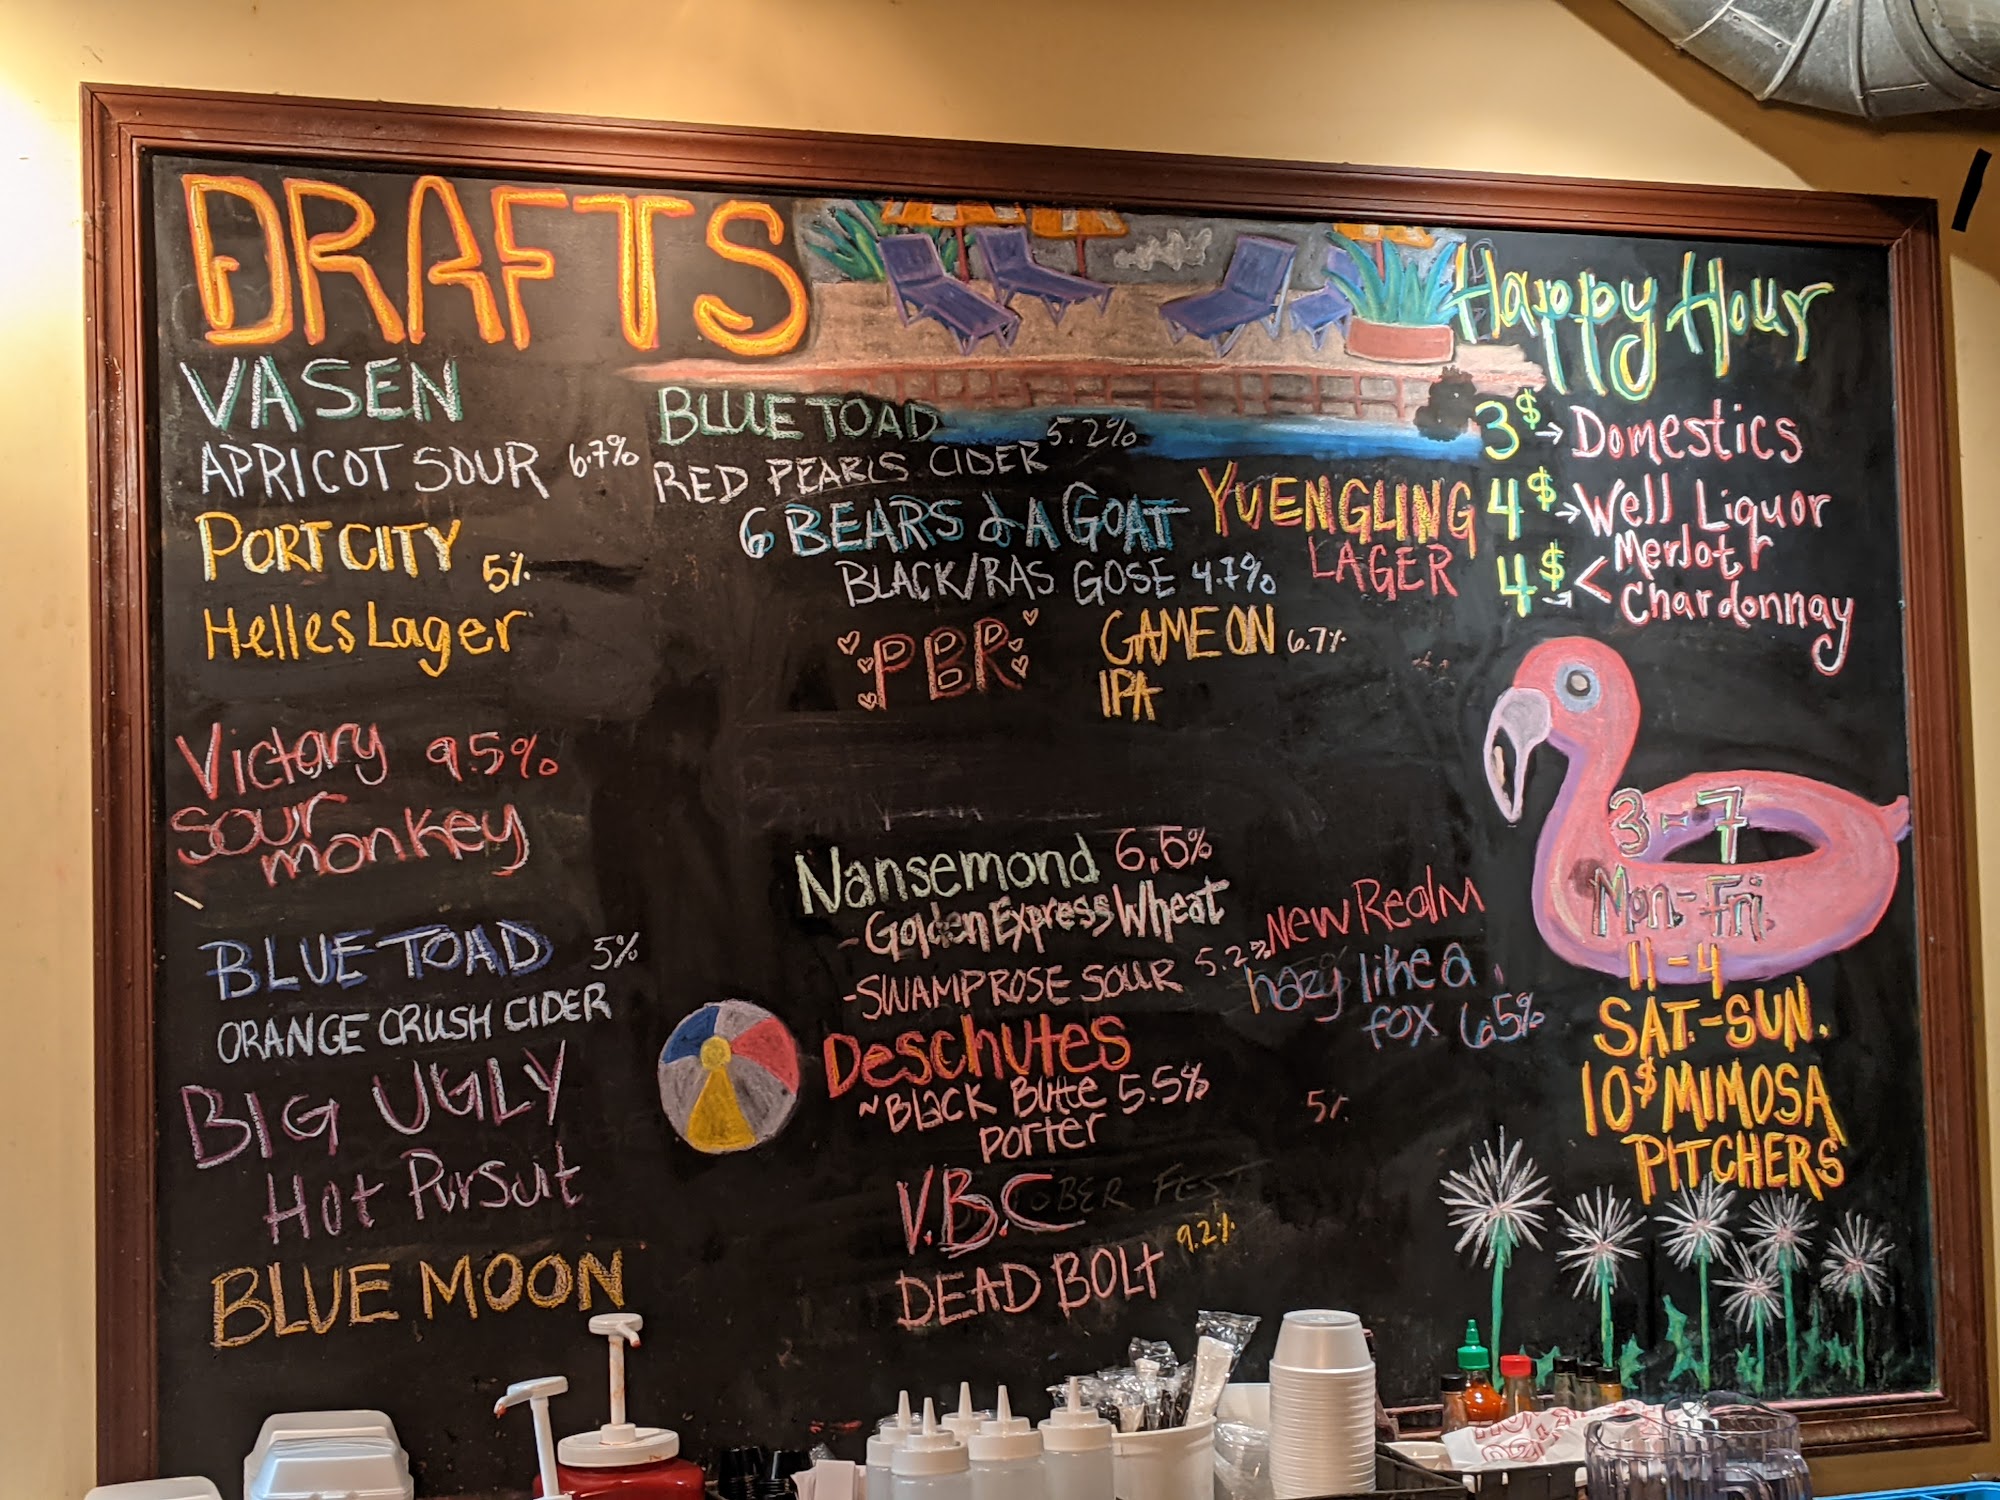 DRAFTS
VASEN
APRICOT SOUR 6.7%
PORT CITY 5%
Helles Lager
Victory 9.5%
Sour
monkey
BLUE TOAD 5%
ORANGE CRUSH CIDER
BIG UGLY
Hot Pursuit
BLUE MOON
BLUE TOAD
RED PEARLS CIDER 5.2%
6 BEARS & A GOAT
BLACK/RAS GOSE 4.7%
YUENGLING
LAGER
PBR
GAME ON 6.7%
IPA
Nansemond 6.5%
- Golden Express Wheat
- SWAMP ROSE SOUR 5.2%
New Realm
hazy like a
fox 6.5%
Deschutes
~ Black Butte 5.5%
porter
5%
V.B.C
OBER FEST
DEAD BOLT 9.2%
Happy Hour
3$ → Domestics
4$ → Well Liquor
4$ < Merlot
Chardonnay
3-7
Mon.-Fri.
11-4
SAT.-SUN.
10$ MIMOSA
PITCHERS